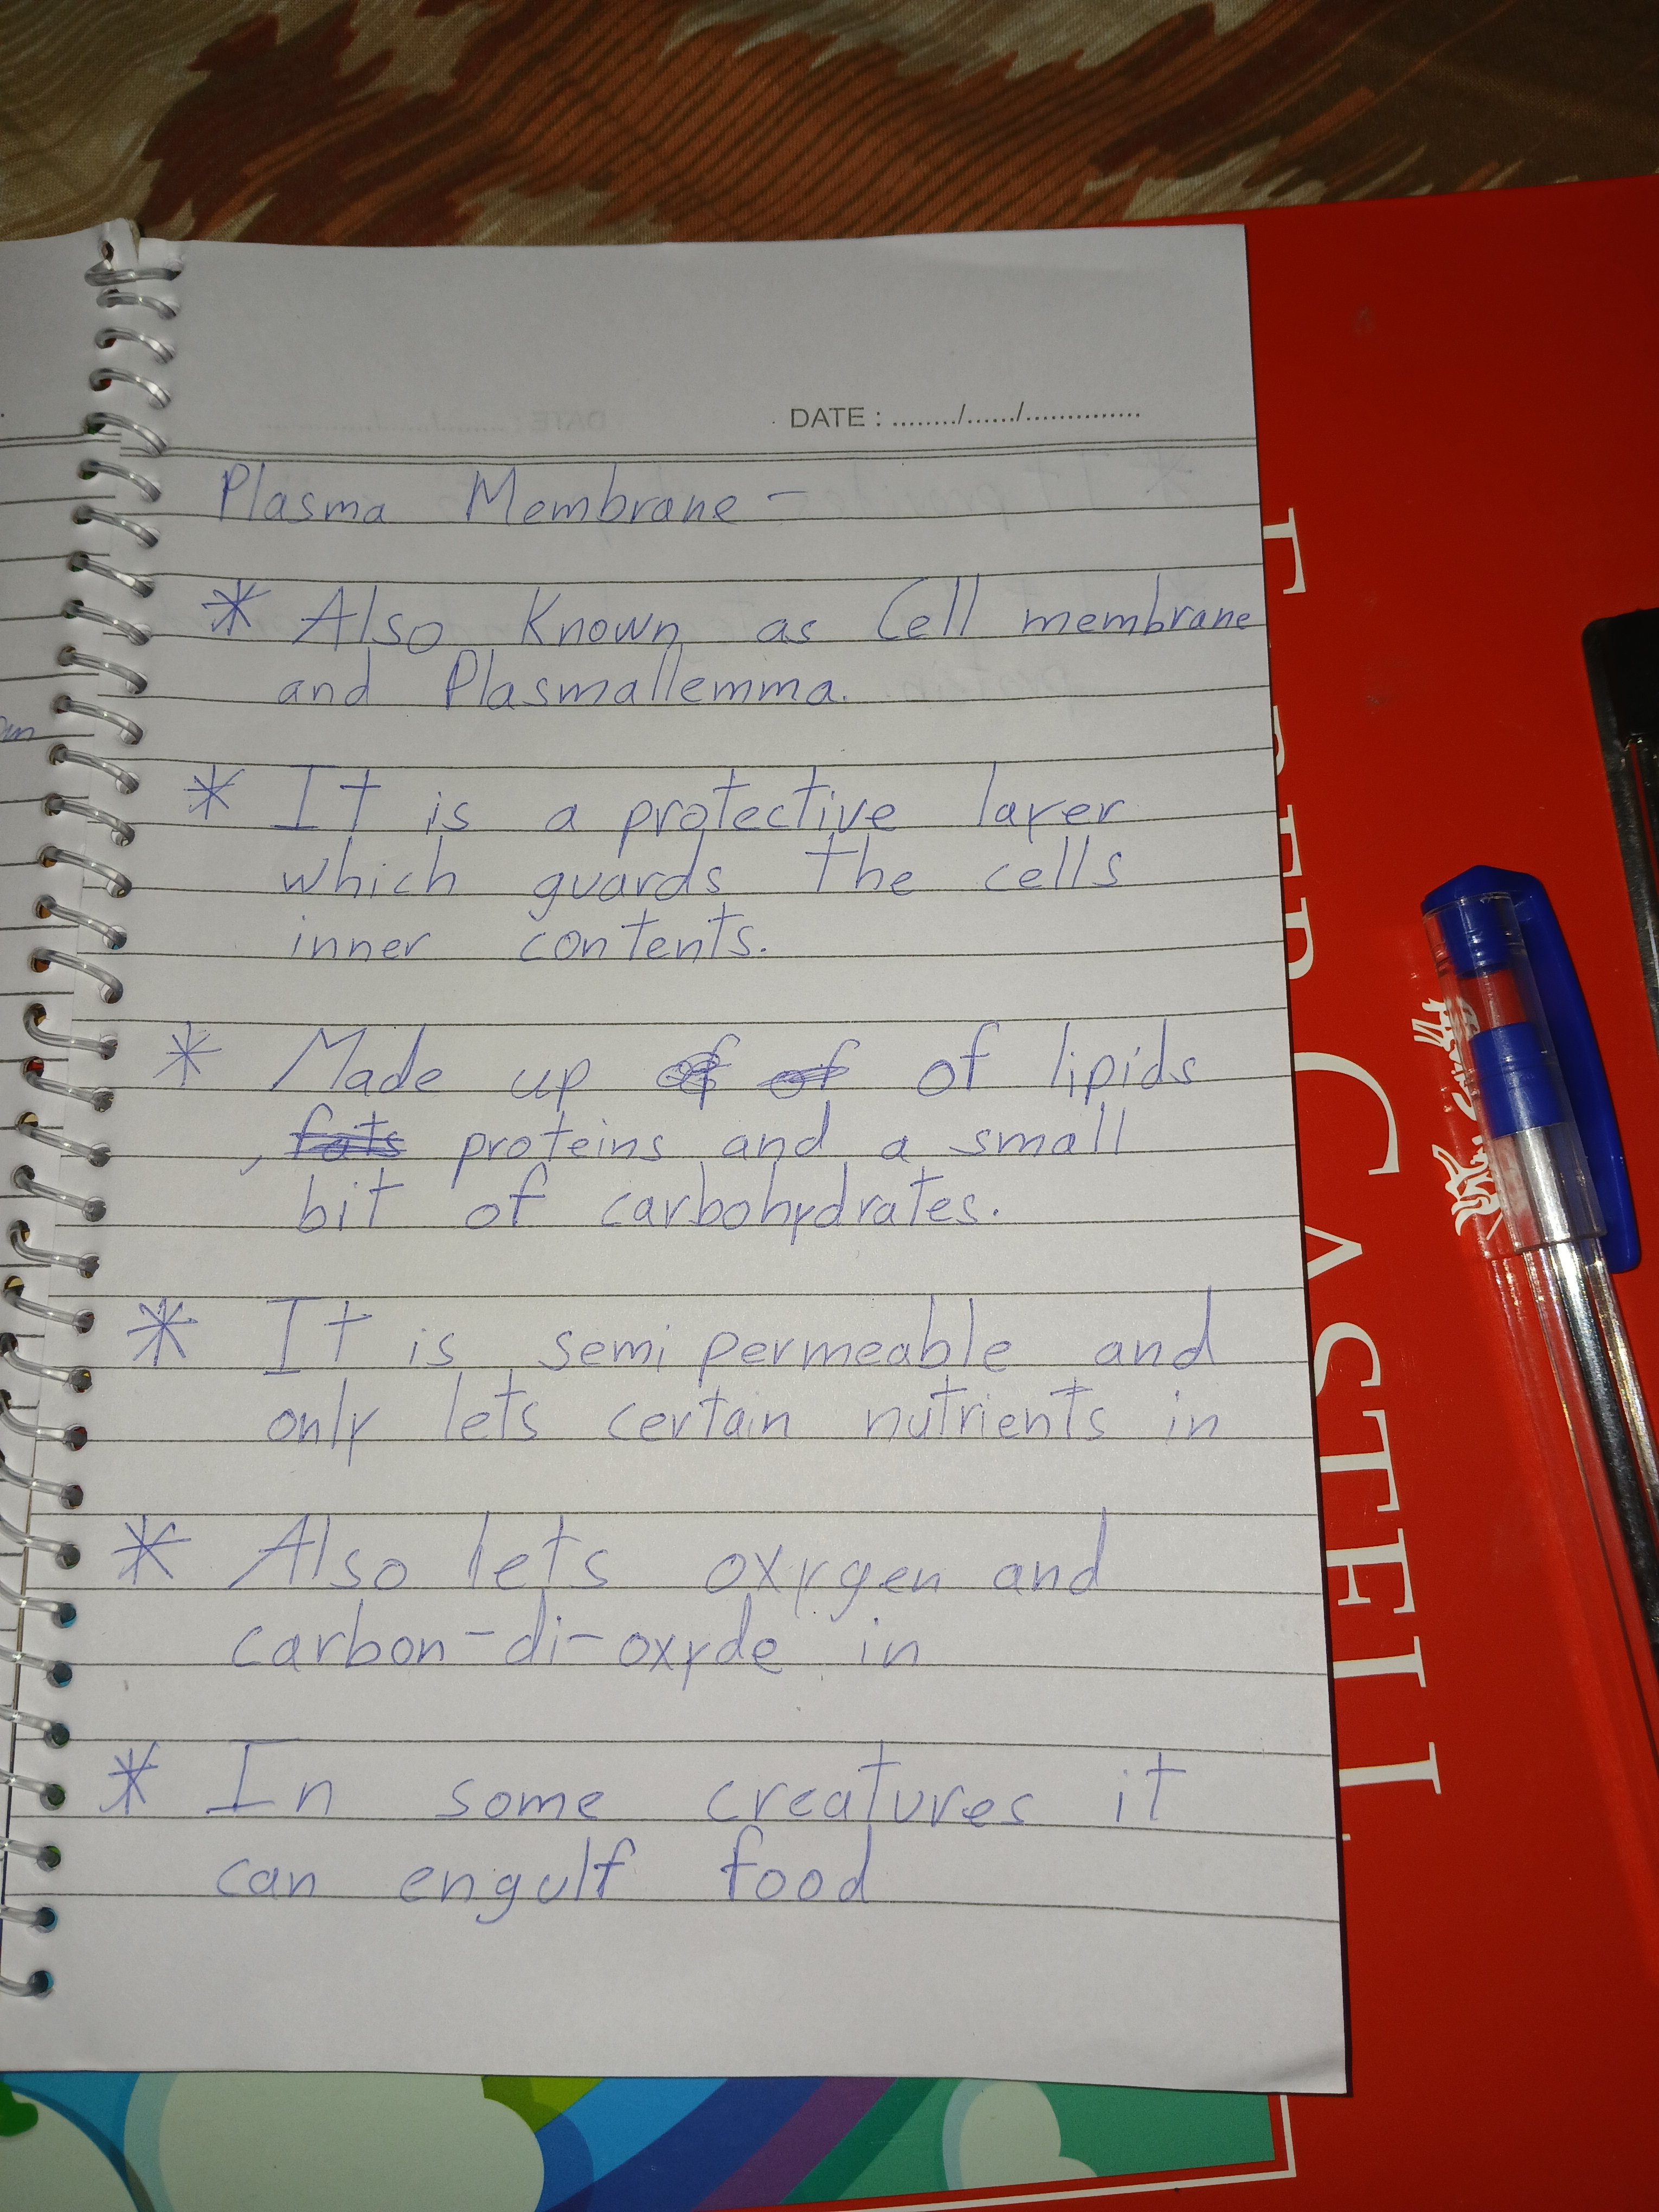 DATE : ......../....../..............
Plasma Membrane -
* Also Known as Cell membrane
and Plasmallemma.
* It is a protective layer
which guards the cells
inner contents.
* Made up of of of lipids
, fats proteins and a small
bit of carbohydrates.
* It is semi permeable and
only lets certain nutrients in
* Also lets oxygen and
carbon-di-oxyde in
* In some creatures it
can engulf food
CASTELL